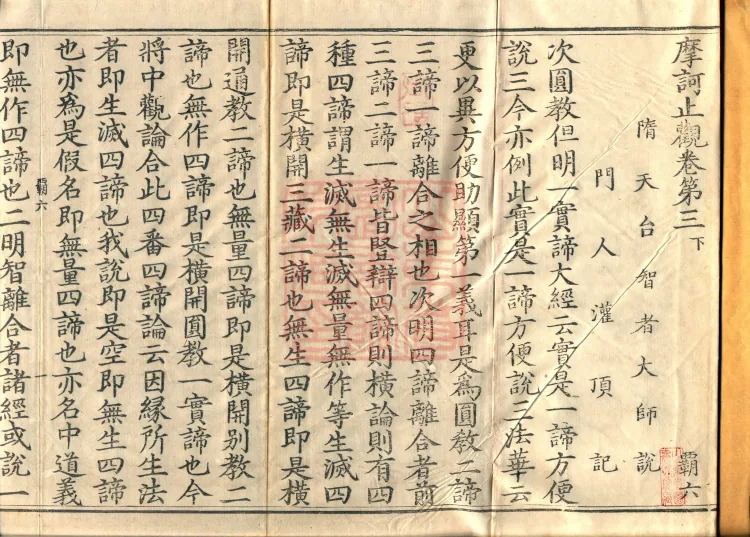 摩訶止觀卷第三下 覇六
隋天台智者大師說
門人灌頂記
次圓教但明一實諦大經云實是一諦方便
說三今亦例此實是一諦方便說三法華云
更以異方便助顯第一義耳是為圓教二諦
三諦一諦離合之相也次明四諦離合者前
三諦二諦一諦皆竪辯四諦則橫論則有四
種四諦謂生滅無生滅無量無作等生滅四
諦即是橫開三藏二諦也無生四諦即是橫
開通教二諦也無量四諦即是橫開別教二
諦也無作四諦即是橫開圓教一實諦也今
將中觀論合此四番四諦論云因緣所生法
者即生滅四諦也我說即是空即無生四諦
也亦為是假名即無量四諦也亦名中道義
覇六
即無作四諦也二明智離合者諸經或說一